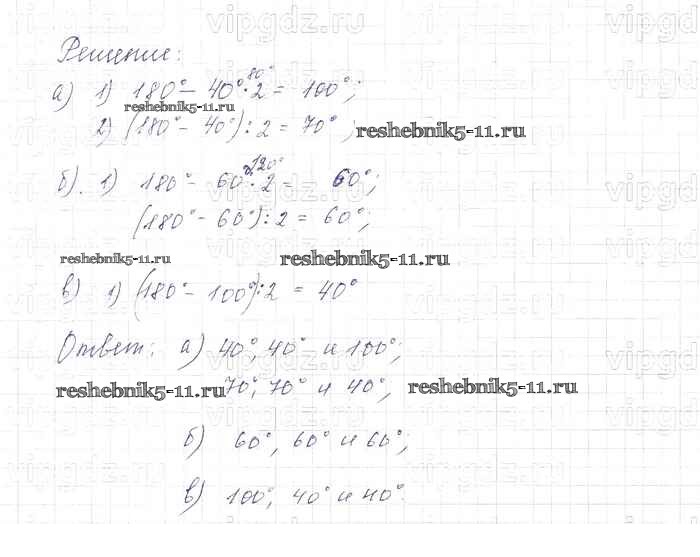 vipgdz.ru vipgdz.ru vipgdz.ru
Решение:
а) 1) 180° - 40°·2 = 100°;
80°
reshebnik5-11.ru
2) (180° - 40°) : 2 = 70°;
reshebnik5-11.ru
б) 1) 180° - 60°·2 = 60°;
120°
(180° - 60°) : 2 = 60°;
reshebnik5-11.ru reshebnik5-11.ru
в) 1) (180° - 100°) : 2 = 40°
Ответ: а) 40°, 40° и 100°;
reshebnik5-11.ru 70°, 70° и 40°; reshebnik5-11.ru
б) 60°, 60° и 60°;
в) 100°, 40° и 40°.